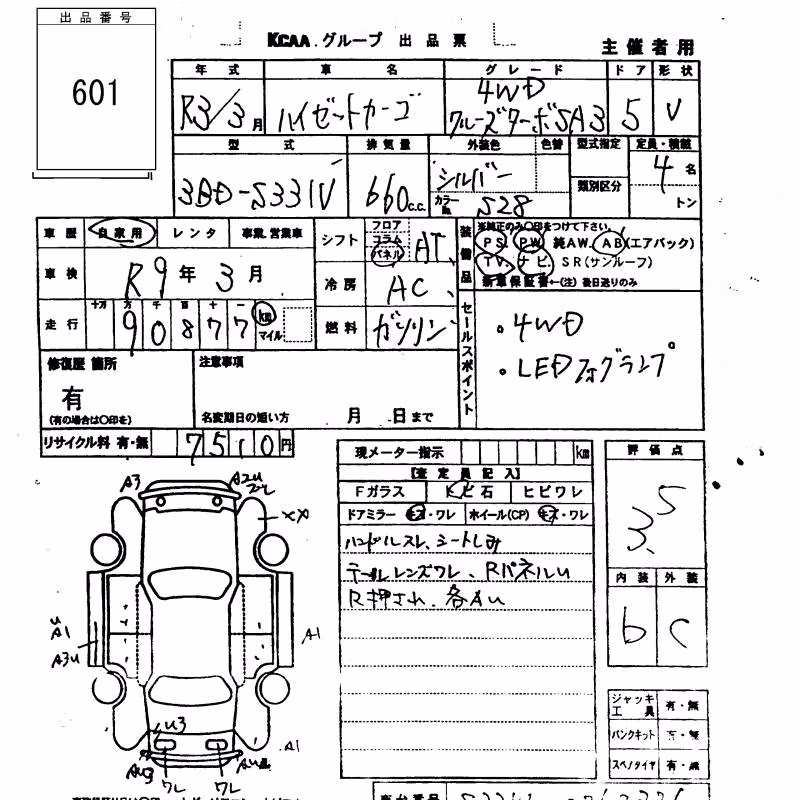 出品番号
601
KCAA グループ 出品票
主催者用
年式 車名 グレード ドア 形状
R3/3月 ハイゼットカーゴ 4WD クルーズターボSA3 5 V
型式 排気量 外装色 色替 型式指定 定員・積載
3BD-S331V 660c.c. シルバー カラーNo. S28 類別区分 4名 トン
車歴 自家用 レンタ 事業.営業車
シフト フロア コラム パネル AT
装備品 ※純正のみ○印をつけて下さい。
PS PW 純AW. AB(エアバック)
TV. ナビ. SR(サンルーフ)
新車保証書←(注) 後日送りのみ
車検 R9年3月
冷房 AC
走行 十万 万 千 百 十 一
90877 km マイル
燃料 ガソリン
セールスポイント
・4WD
・LEDフォグランプ
修復歴 箇所
有
(有の場合は○印を)
注意事項
名変期日の短い方 月 日まで
リサイクル料 有・無 7510円
現メーター指示 km
【査定員記入】
Fガラス トビ石 ヒビワレ
ドアミラー キズ・ワレ ホイール(CP) キズ・ワレ
ハンドルスレ、シートしみ
テールレンズワレ、RパネルU
R押され、各AU
評価点
3.5
内装 外装
b C
ジャッキ工具 有・無
パンクキット 有・無
スペアタイヤ 有・無
A3
A2U
XX
U
A1
A3U
A1
U3
A1
AU3
ワレ
ワレ
車台番号